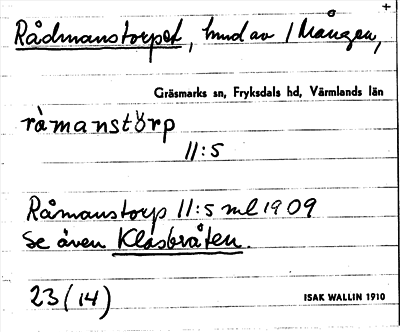 Rådmanstorpet, hmd av / Mången,
Gräsmarks sn, Fryksdals hd, Värmlands län
råmanstörp
11:5
Råmanstorp 11:5 ml 1909
Se även Klasbråten.
23 (14)
ISAK WALLIN 1910